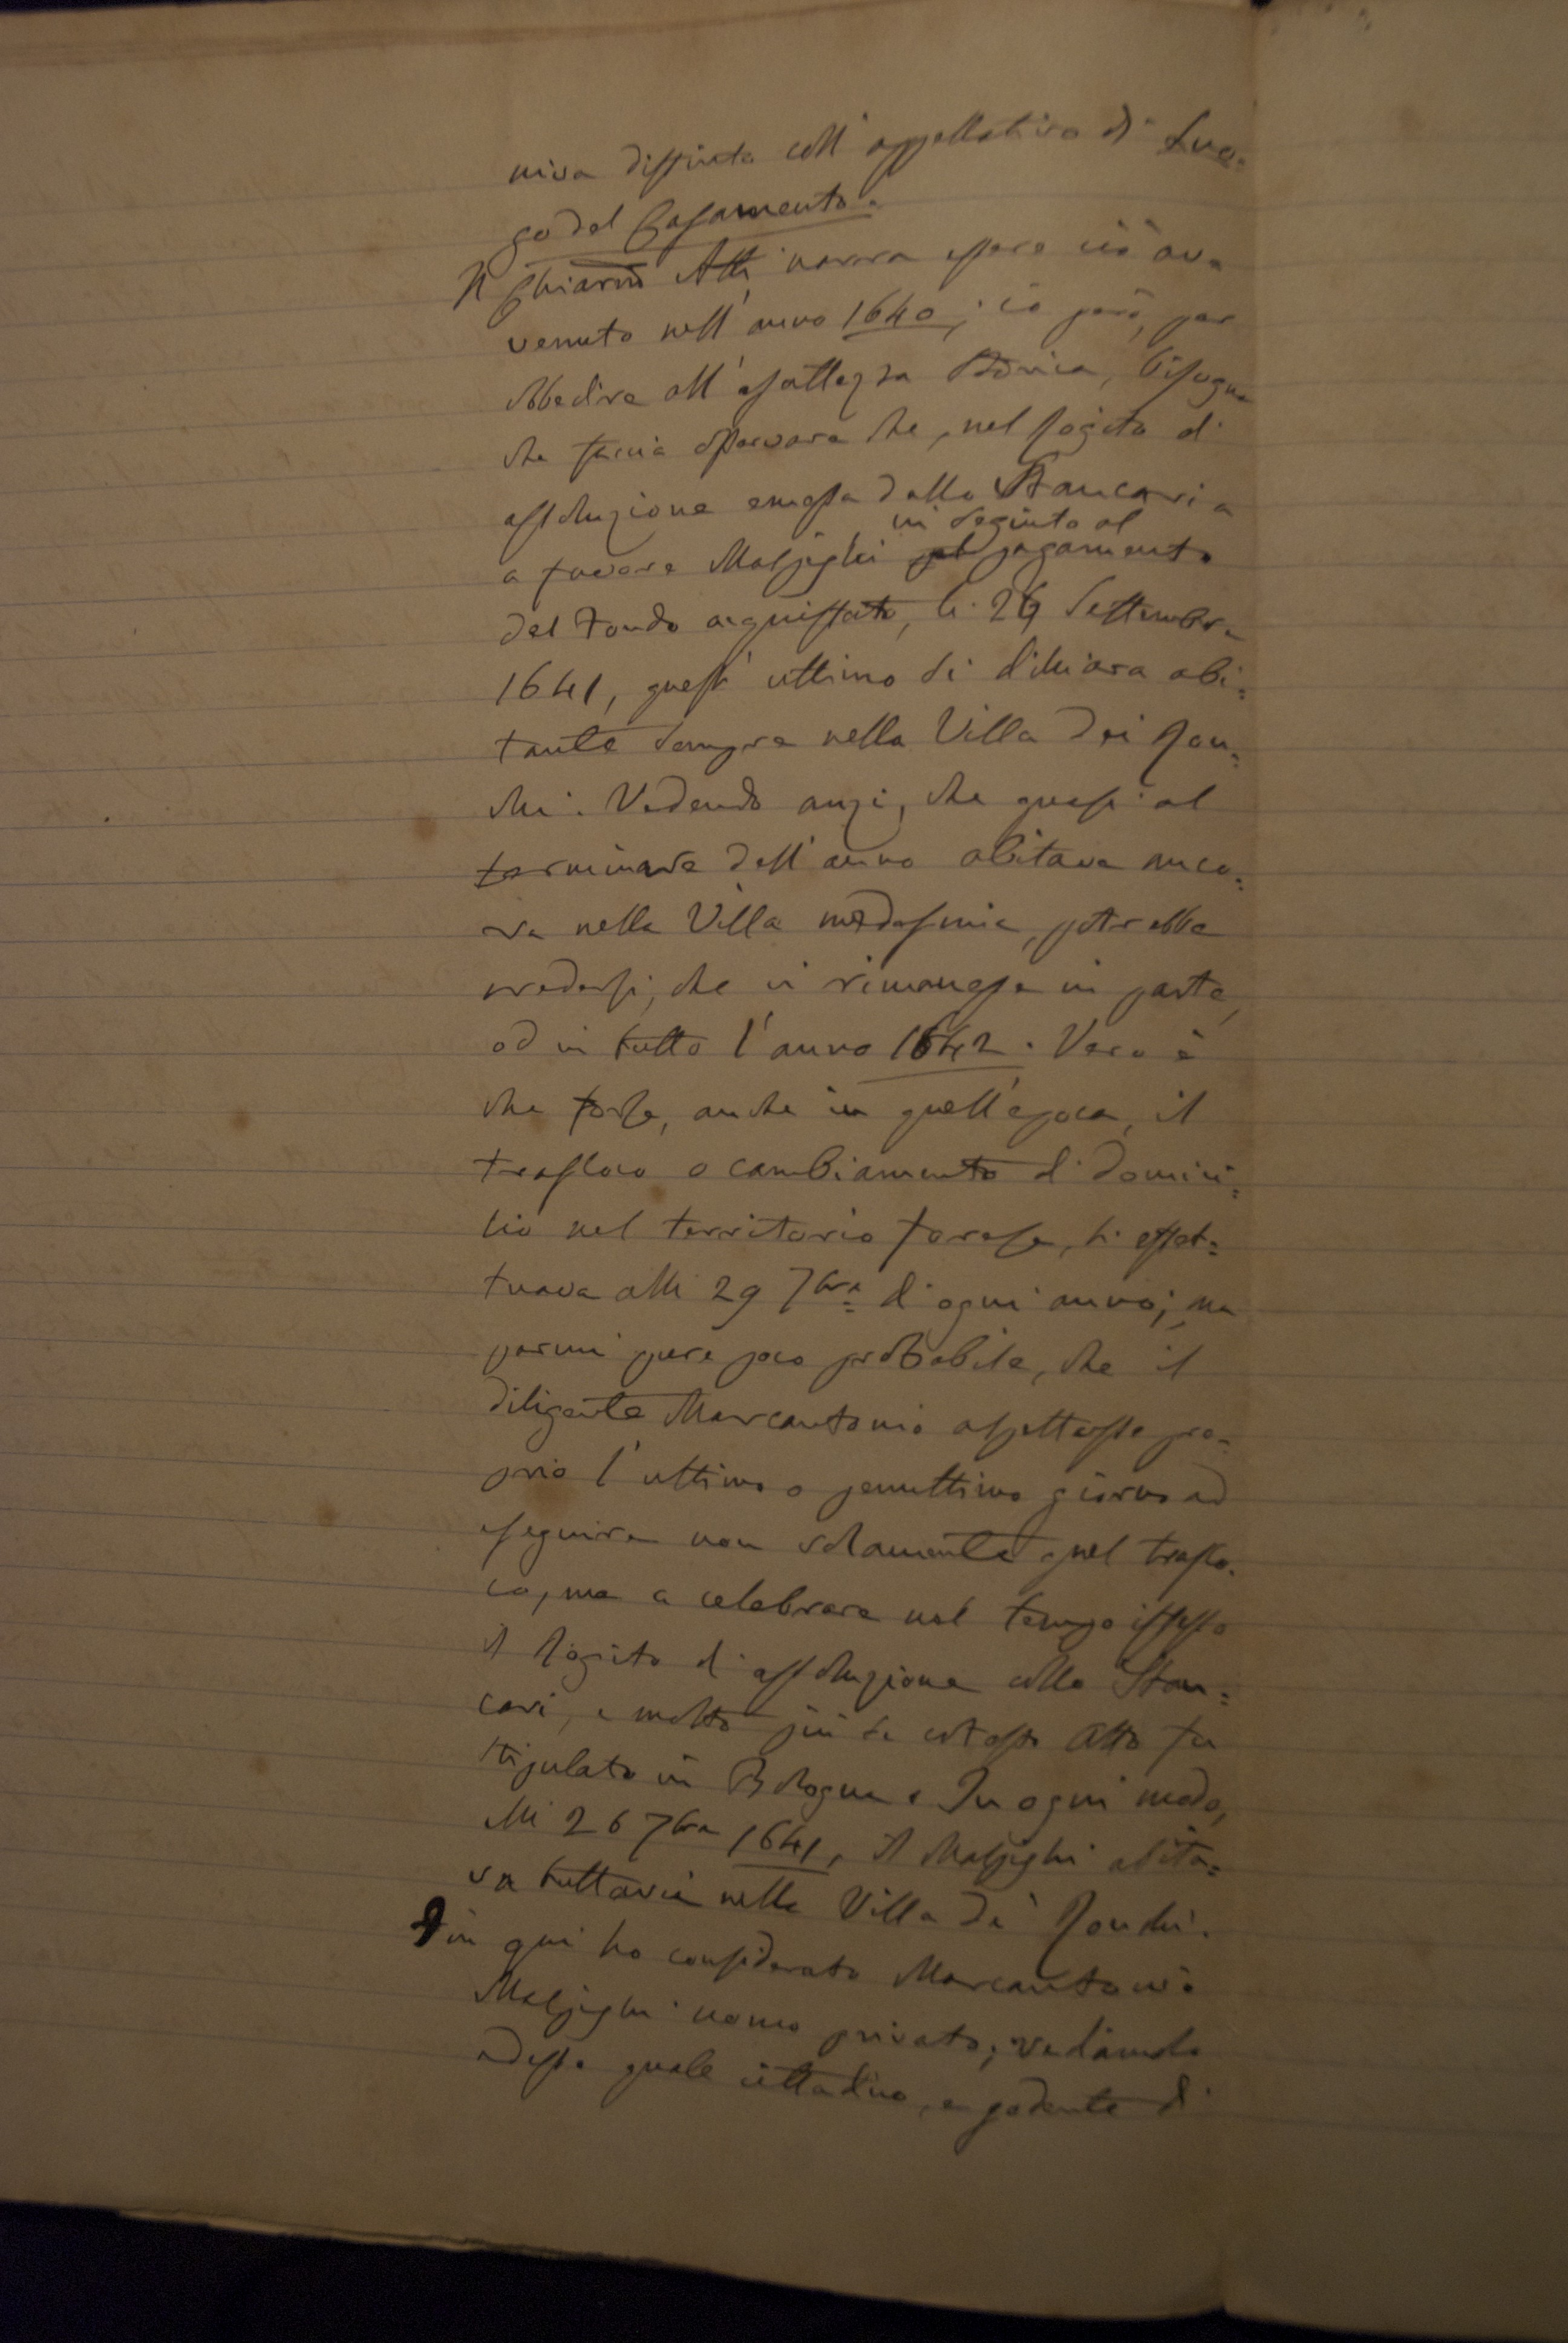 niva distinta coll'appellativo di Luo=
go del Casamento.
Il Chiarmo Atti, narra essere ciò av=
venuto nell'anno 1640; io però, per
obbedire all'esattezza storica, bisogna
che faccia osservare che, nel Rogito di
assoluzione emessa dallo Stancari a
in seguito al
a favore Malpighi pel pagamento
del Fondo acquistato, li 26 Settembre
1641, quest'ultimo si dichiara abi=
tante sempre nella Villa dei Ron=
chi. Vedendo anzi, che quasi al
terminare dell'anno abitava anco=
ra nella Villa medesima, potrebbe
credersi, che vi rimanesse in parte,
od in tutto l'anno 1642. Vero è
che forse, anche in quell'epoca, il
trasloco o cambiamento di domici=
lio nel territorio forese, si effet=
tuava alli 29 7bre d'ogni anno; ma
parmi pure poco probabile, che il
diligente Marcantonio aspettasse pro=
prio l'ultimo o penultimo giorno ad
eseguire non solamente quel traslo=
co, ma a celebrare nel tempo istesso
il Rogito di assoluzione collo Stan=
cari, e molto più se cotesto Atto fu
stipulato in Bologna. In ogni modo,
alli 26 7bre 1641, il Malpighi abita=
va tuttavia nella Villa de' Ronchi.
Fin qui ho considerato Marcantonio
Malpighi uomo privato; vediamolo
adesso quale cittadino, e godente di